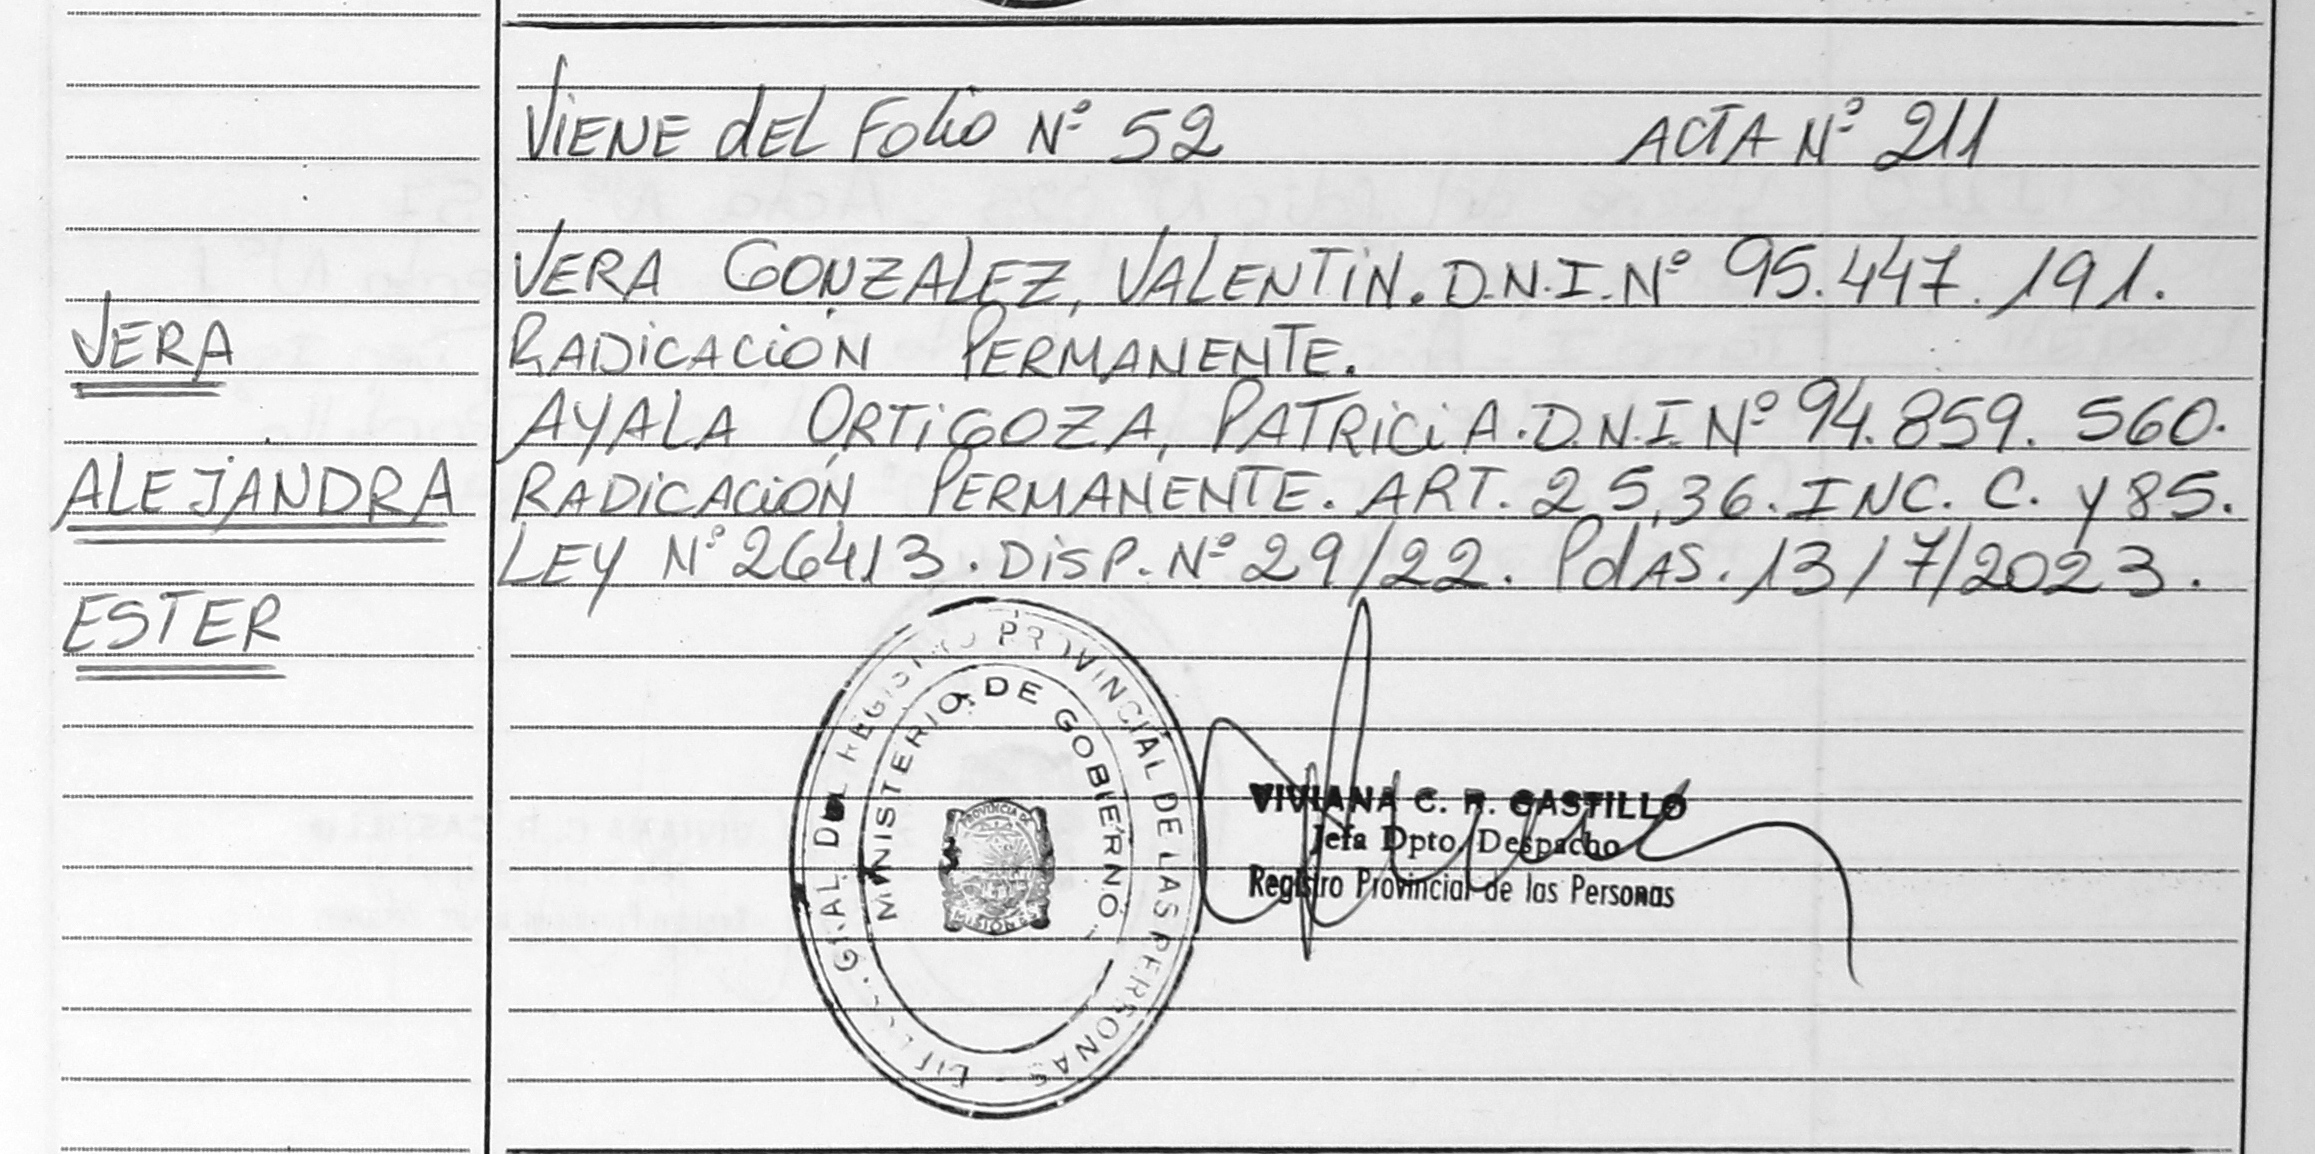 VIENE dEL Folio Nº 52 ACTA Nº 211
VERA GONZALEZ, VALENTIN. D.N.I. Nº 95.447.191.
RADICACIÓN PERMANENTE.
AYALA ORTIGOZA, PATRICIA. D.N.I Nº 94.859.560.
RADICACIÓN PERMANENTE. ART. 25,36. INC. C. y 85.
LEY Nº 26413. DISP. Nº 29/22. PdAS. 13/7/2023.
VERA
ALEJANDRA
ESTER
GRAL DEL REGISTRO PROVINCIAL DE LAS PERSONAS
MINISTERIO DE GOBIERNO
PROVINCIA DE
MISIONES
VIVIANA C. R. CASTILLO
Jefa Dpto. Despacho
Registro Provincial de las Personas